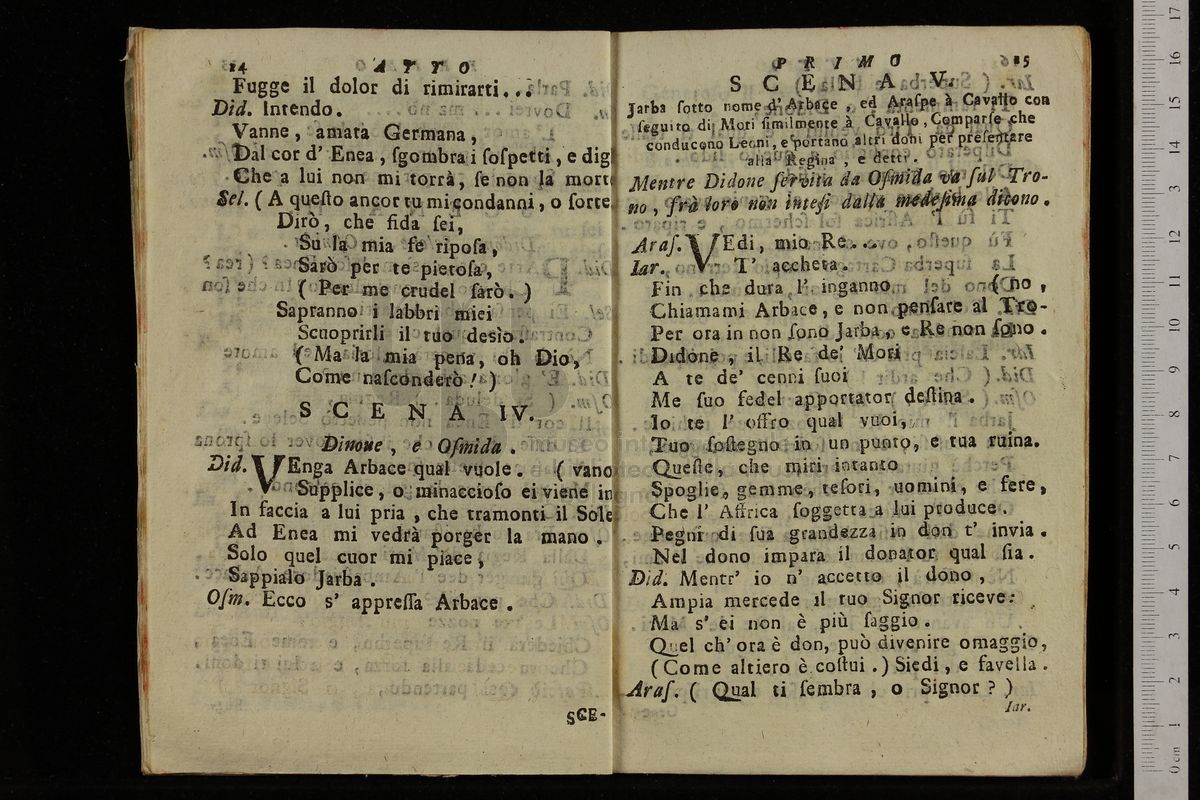 14 ATTO
Fugge il dolor di rimirarti...
Did. Intendo.
Vanne, amata Germana,
Dal cor d' Enea, ſgombra i ſoſpetti, e dig
Che a lui non mi torrà, ſe non la mort
Sel. ( A queſto ancor tu mi condanni, o ſorte
Dirò, che fida ſei,
Su la mia fe ripoſa,
Sarò per te pietoſa,
( Per me crudel ſarò. )
Sapranno i labbri miei
Scuoprirli il tuo desìo.
( Ma la mia pena, oh Dio,
Come naſconderò! )
SCENA IV.
Dinoue, e Oſmida.
Did. VEnga Arbace qual vuole. ( vano
Supplice, o minaccioſo ei viene in
In faccia a lui pria, che tramonti il Sole
Ad Enea mi vedrà porger la mano.
Solo quel cuor mi piace,
Sappialo Jarba.
Oſm. Ecco s' appreſſa Arbace.
SCE-
PRIMO 15
SCENA V.
Jarba ſotto nome d' Arbace, ed Araſpe à Cavallo con
ſeguito di Mori ſimilmente à Cavallo, Comparſe che
conducono Leoni, e portano altri doni per preſentare
alla Regina, e detti.
Mentre Didone ſervita da Oſmida va ſul Tro-
no, frà loro non inteſi dalla medeſima dicono.
Araſ. VEdi, mio Re...
Iar. T' accheta.
Fin che dura l' inganno ( no,
Chiamami Arbace, e non penſare al Tro-
Per ora in non ſono Jarba, e Re non ſono.
Didone, il Re de' Mori
A te de' cenni ſuoi
Me ſuo fedel apportator deſtina.
Io te l' offro qual vuoi,
Tuo ſoſtegno in un punto, e tua ruina.
Queſte, che miri intanto
Spoglie, gemme, teſori, uomini, e fere,
Che l' Affrica ſoggetta a lui produce.
Pegni di ſua grandezza in don t' invia.
Nel dono impara il donator qual ſia.
Did. Mentr' io n' accetto il dono,
Ampia mercede il tuo Signor riceve:
Ma s' ei non è più ſaggio.
Quel ch' ora è don, può divenire omaggio,
( Come altiero è coſtui. ) Siedi, e favella.
Araſ. ( Qual ti ſembra, o Signor? )
Iar.